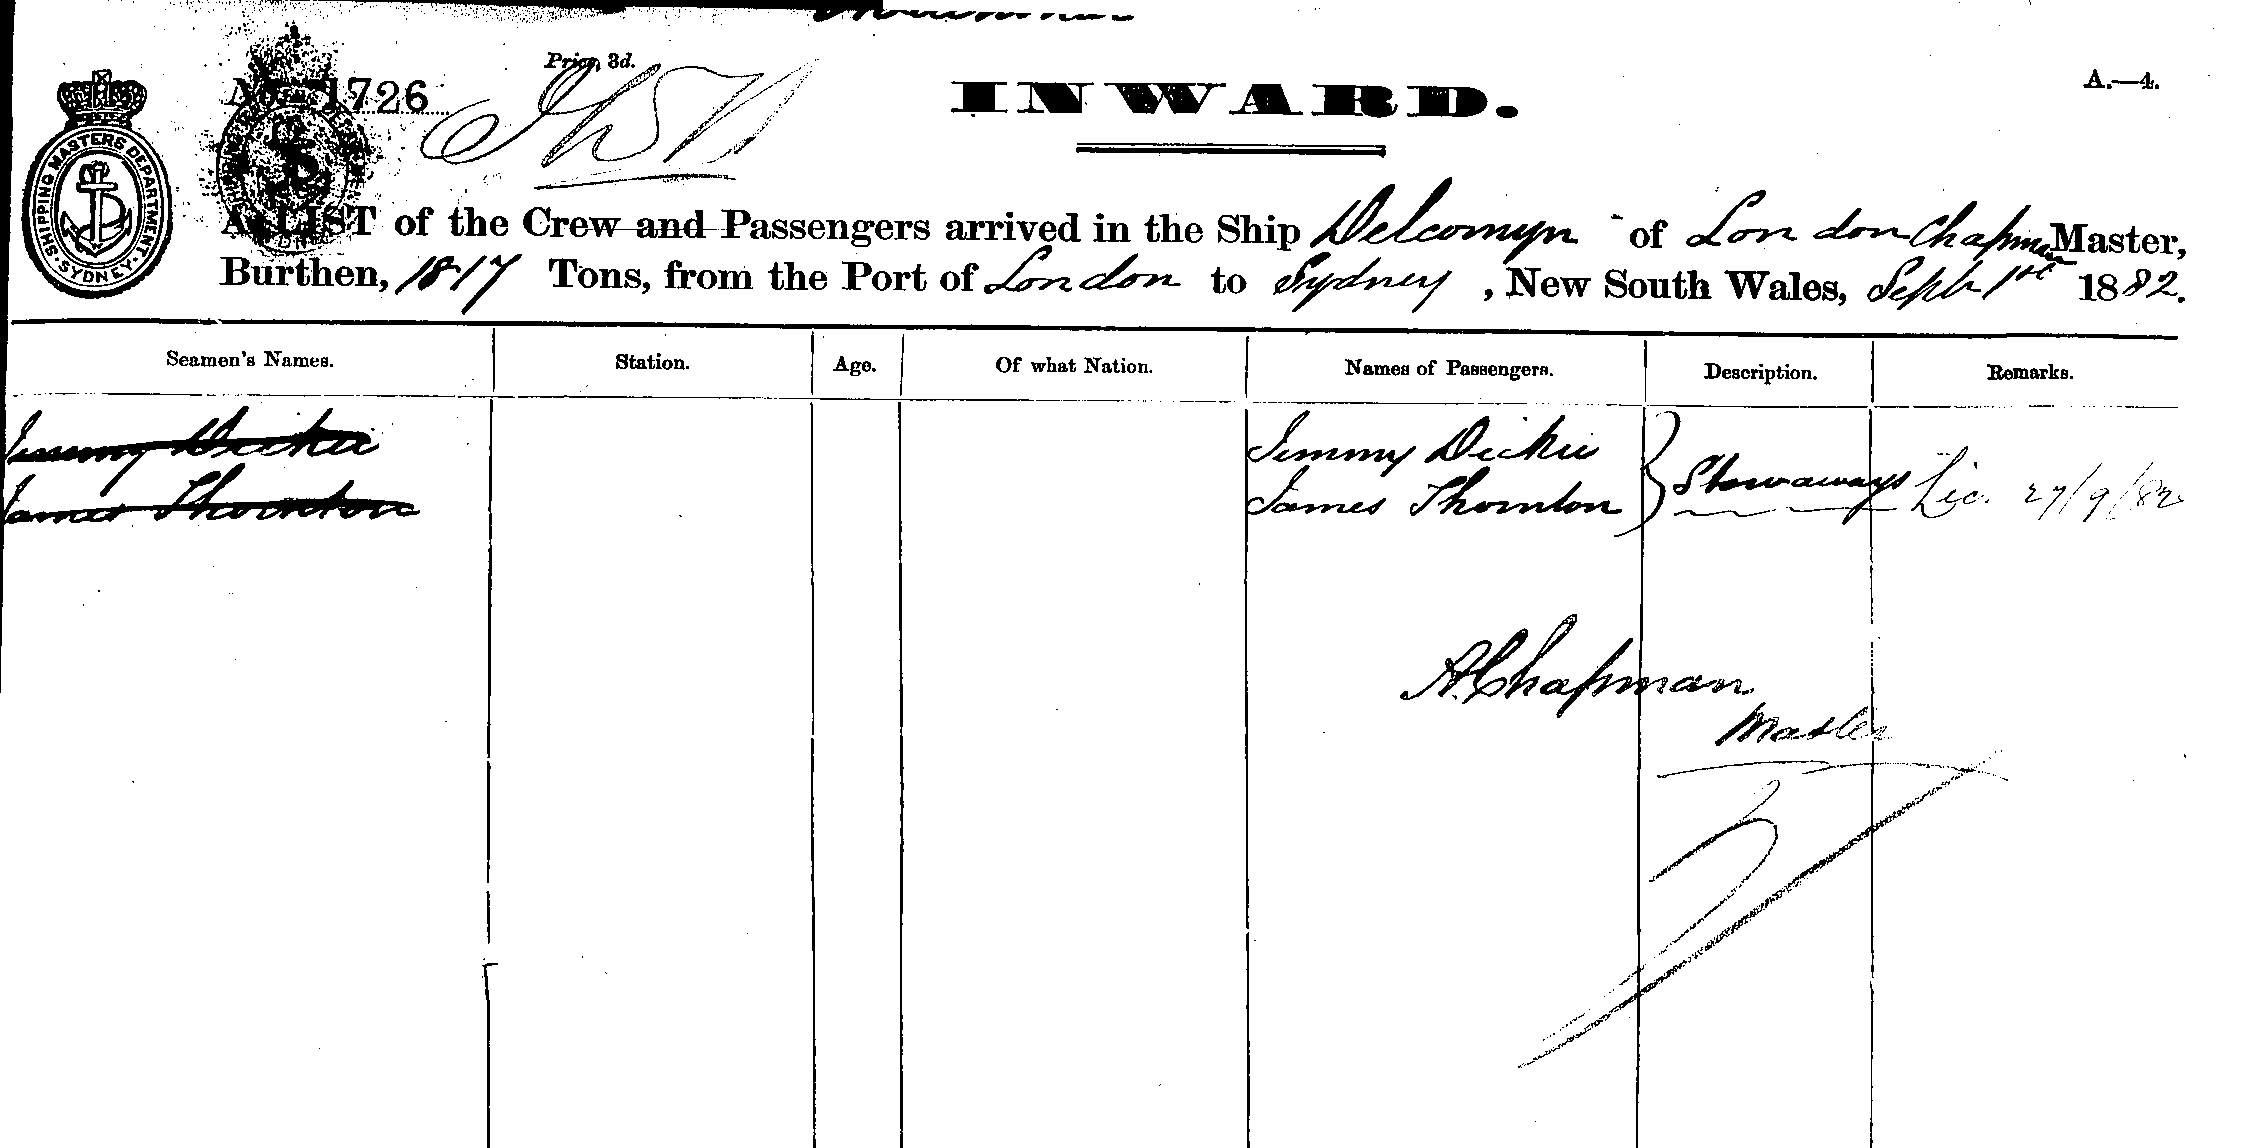 Price, 3d.
No. 1726
INWARD.
A.—4.
SHIPPING MASTERS DEPARTMENT · SYDNEY ·
A LIST of the Crew and Passengers arrived in the Ship Delcomyn of London Chapman Master,
Burthen, 1817 Tons, from the Port of London to Sydney, New South Wales, Septr 1st 1882.
Seamen's Names. Station. Age. Of what Nation. Names of Passengers. Description. Remarks.
Jimmy Dickie Jimmy Dickie
James Thornton James Thornton Stowaways Lic. 27/9/82
A. Chapman
Master